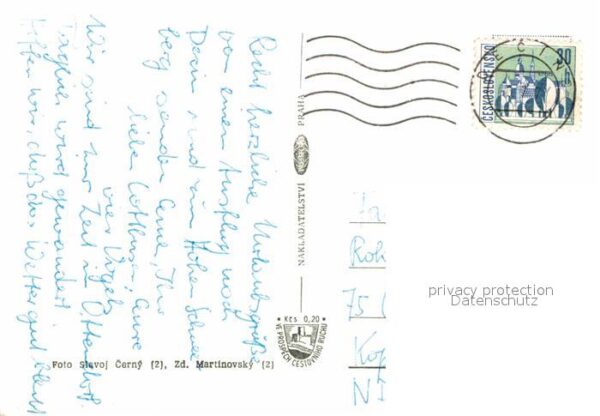 Recht herzliche Urlaubsgrüße
von einem Ausflug nach
Decin und zum Hohen Schnee-
berg senden Euch, Ihr
lieben Cottbuser, Eure
vier Vögels
Wir sind zur Zeit in Ottendorf.
Täglich wird gewandert.
Hoffen wir, daß das Wetter gut bleibt
NAKLADATELSTVÍ
PRAHA
Kčs 0,20
VE PROSPĚCH CESTOVNÍHO RUCHU
Foto Slavoj Černý (2), Zd. Martinovský (2)
ČESKOSLOVENSKO
30
h
DĚČÍN
75
privacy protection
Datenschutz